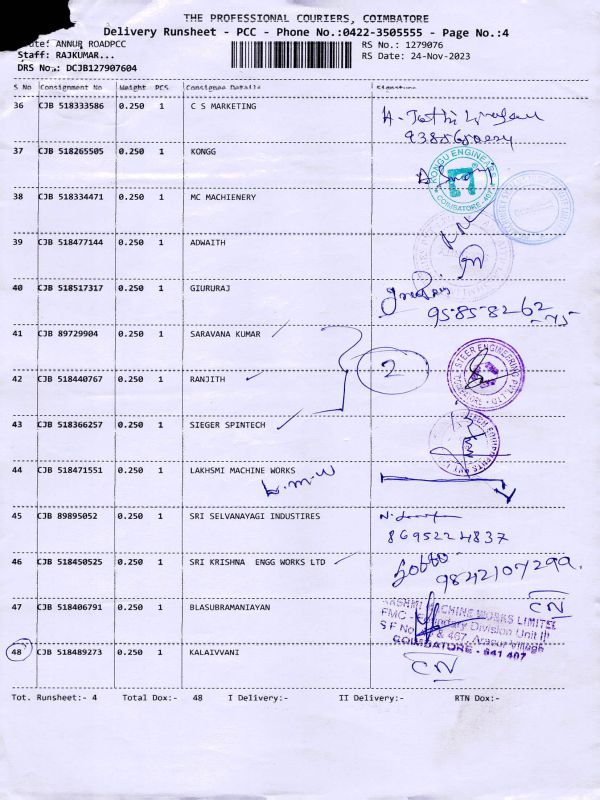 THE PROFESSIONAL COURIERS, COIMBATORE
Delivery Runsheet - PCC - Phone No.:0422-3505555 - Page No.:4
ANNUR ROADPCC RS No.: 1279076
Staff: RAJKUMAR... RS Date: 24-Nov-2023
DRS No.: DCJB127907604
S No Consignment No Weight PCS Consignee Details Signature
36 CJB 518333586 0.250 1 C S MARKETING
37 CJB 518265505 0.250 1 KONGG
KONGU ENGINEARS
COIMBATORE
38 CJB 518334471 0.250 1 MC MACHIENERY
39 CJB 518477144 0.250 1 ADWAITH
40 CJB 518517317 0.250 1 GIURURAJ
95858262
-75
41 CJB 89729904 0.250 1 SARAVANA KUMAR
2
STEER ENGINEERING PVT LTD
42 CJB 518440767 0.250 1 RANJITH
43 CJB 518366257 0.250 1 SIEGER SPINTECH
44 CJB 518471551 0.250 1 LAKHSMI MACHINE WORKS
L.M.W
45 CJB 89895052 0.250 1 SRI SELVANAYAGI INDUSTIRES
8695224837
46 CJB 518450525 0.250 1 SRI KRISHNA ENGG WORKS LTD
9842107299.
CN
47 CJB 518406791 0.250 1 BLASUBRAMANIAYAN
MACHINE WORKS LIMITED
FMC - Foundary Division Unit II
S F No & 467, Arasur Village
COIMBATORE - 641 407
48 CJB 518489273 0.250 1 KALAIVVANI
CN
Tot. Runsheet:- 4 Total Dox:- 48 I Delivery:- II Delivery:- RTN Dox:-